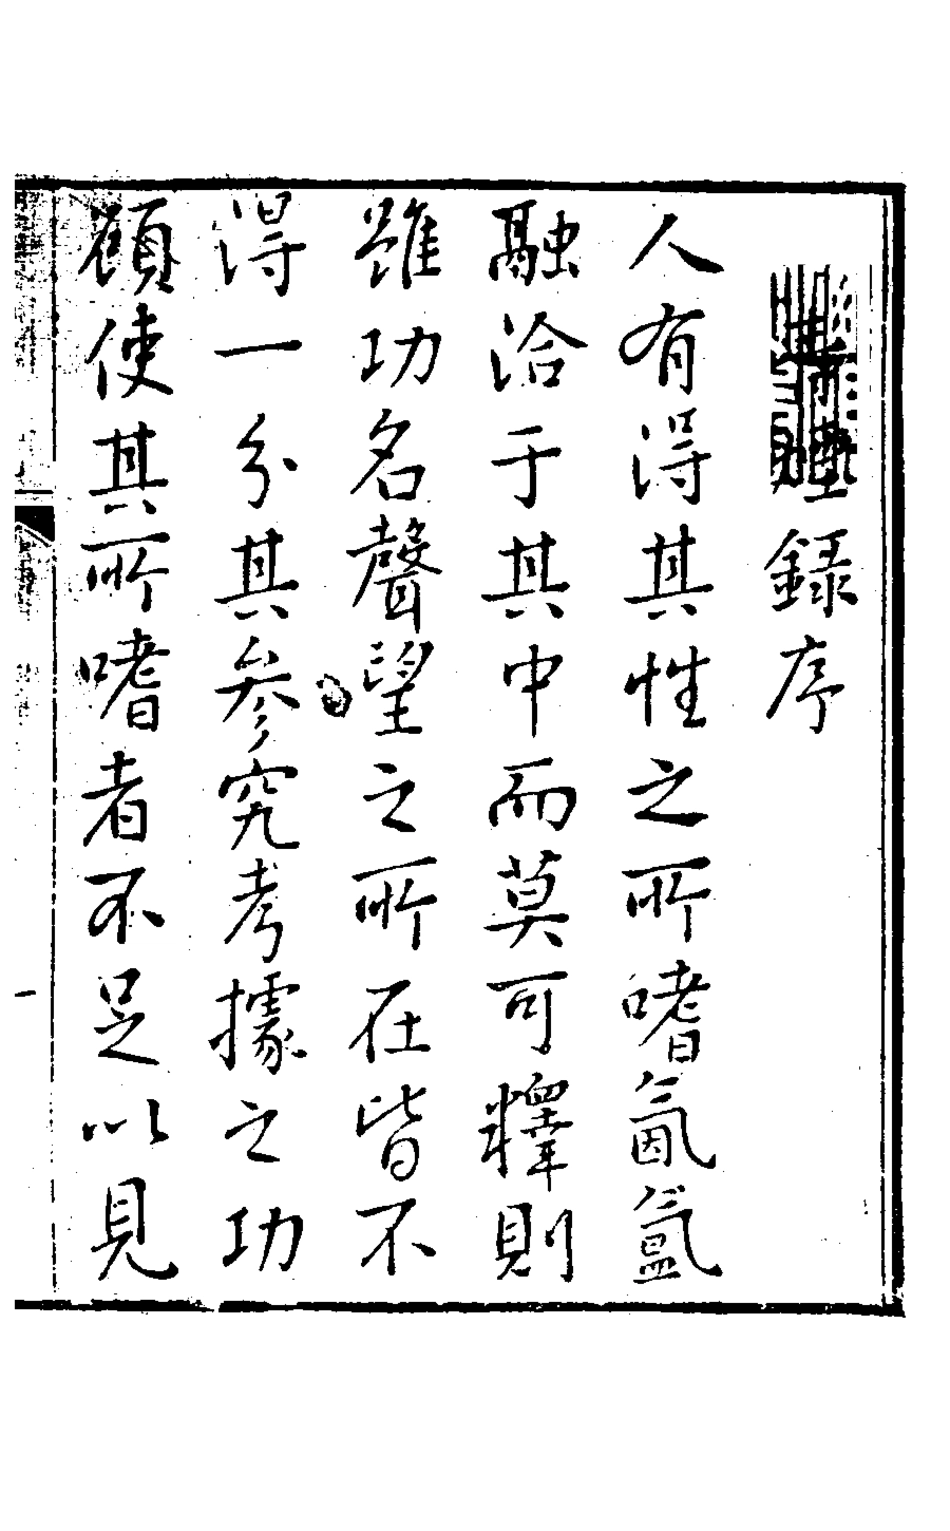 錄序
人有得其性之所嗜氤氳
融洽于其中而莫可釋則
雖功名聲望之所在皆不
得一分其參究考據之功
顧使其所嗜者不足以見